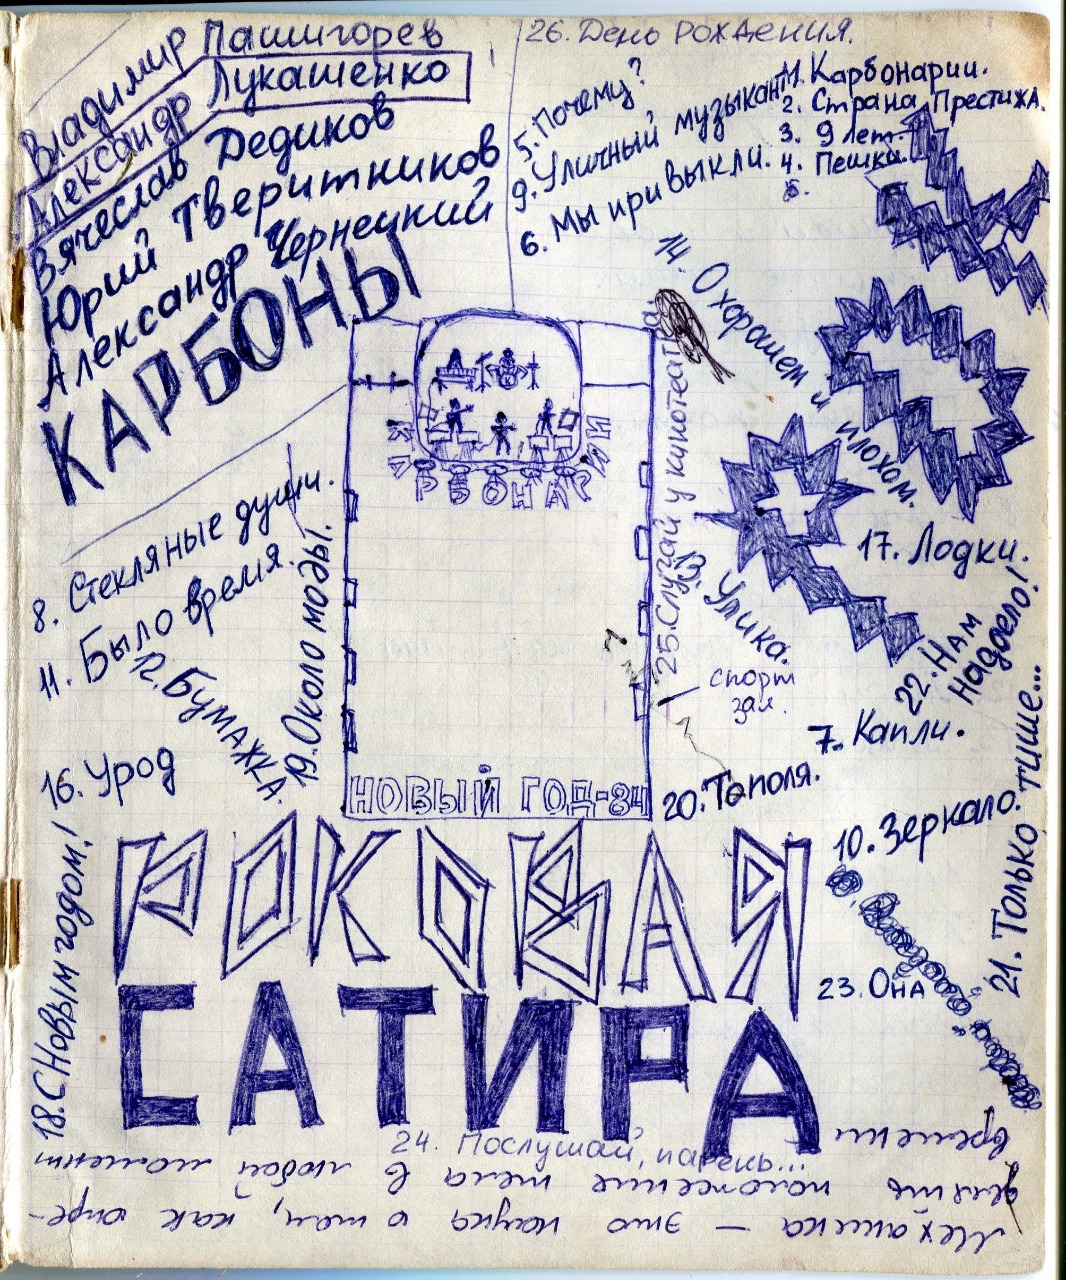 Владимир Пашигорев
Александр Лукашенко
Вячеслав Дедиков
Юрий Тверитников
Александр Чернецкий
КАРБОНЫ
26. День рождения.
5. Почему?
9. Уличный музыкант
6. Мы привыкли.
1. Карбонарии.
2. Страна Престижа.
3. 9 лет.
4. Пешки.
5.
14. О хорошем и плохом.
КАРБОНАРИИ
25. Случай у кинотеатра
13. Улика.
17. Лодки.
22. Нам надоело!
спорт
зал.
7. Капли.
8. Стекляные души.
11. Было время.
12. Бумажка.
19. Около моды.
16. Урод
18. С Новым годом!
НОВЫЙ ГОД-84
20. Тополя.
10. Зеркало.
21. Только тише...
23. Она
РОКОВАЯ
САТИРА
24. Послушай, парень...
Механика — это наука о том, как опре-
делить положение тела в любой момент
времени